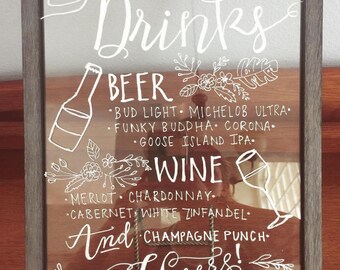 Drinks
BEER
· BUD LIGHT · MICHELOB ULTRA ·
· FUNKY BUDDHA · CORONA ·
· GOOSE ISLAND IPA ·
WINE
· MERLOT · CHARDONNAY ·
· CABERNET · WHITE ZINFANDEL ·
And · CHAMPAGNE PUNCH ·
Cheers!